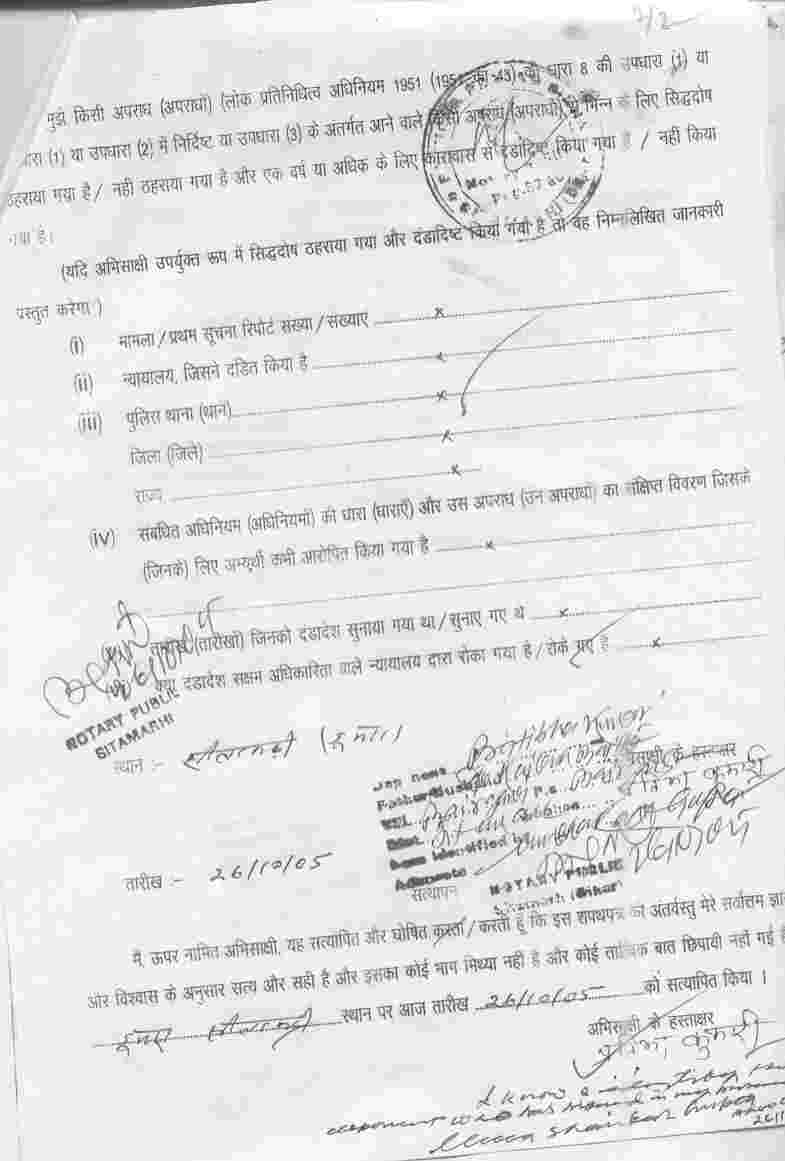 7/2
मुझे किसी अपराध (अपराधों) (लोक प्रतिनिधित्व अधिनियम 1951 (1951 का 43) की धारा 8 की उपधारा (1) या
धारा (1) या उपधारा (2) में निर्दिष्ट या उपधारा (3) के अंतर्गत आने वाले किसी अपराध (अपराधों) से भिन्न के लिए सिद्धदोष
ठहराया गया है / नहीं ठहराया गया है और एक वर्ष या अधिक के लिए कारावास से दंडादिष्ट किया गया है / नहीं किया
गया है।
(यदि अभिसाक्षी उपर्युक्त रूप में सिद्धदोष ठहराया गया और दंडादिष्ट किया गया है तो वह निम्नलिखित जानकारी
प्रस्तुत करेगा)
(i) मामला / प्रथम सूचना रिपोर्ट संख्या / संख्याएं x
(ii) न्यायालय, जिसने दंडित किया है x
(iii) पुलिस थाना (थाने) x
जिला (जिले) x
राज्य x
(iv) संबंधित अधिनियम (अधिनियमों) की धारा (धाराएँ) और उस अपराध (उन अपराधों) का संक्षिप्त विवरण जिसके
(जिनके) लिए अभ्यर्थी कभी आरोपित किया गया है x
(तारीखों) जिनको दंडादेश सुनाया गया था / सुनाए गए थे x
क्या दंडादेश सक्षम अधिकारिता वाले न्यायालय द्वारा रोका गया है / रोके गए हैं x
NOTARY PUBLIC
SITAMARHI
स्थान :- सीतामढ़ी (डुमरा)
अभिसाक्षी के हस्ताक्षर
कुमारी
तारीख :- 26/10/05
Advocate
NOTARY PUBLIC
Sitamarhi (Bihar)
सत्यापन
मैं, ऊपर नामित अभिसाक्षी, यह सत्यापित और घोषित करता / करती हूँ कि इस शपथपत्र का अंतर्वस्तु मेरे सर्वोत्तम
और विश्वास के अनुसार सत्य और सही है और इसका कोई भाग मिथ्या नहीं है और कोई तात्विक बात छिपायी नहीं गई
डुमरा सीतामढ़ी स्थान पर आज तारीख 26/10/05 को सत्यापित किया ।
अभिसाक्षी के हस्ताक्षर
कुमारी
I know
deponent who has signed in my
Uma Shankar Gupta